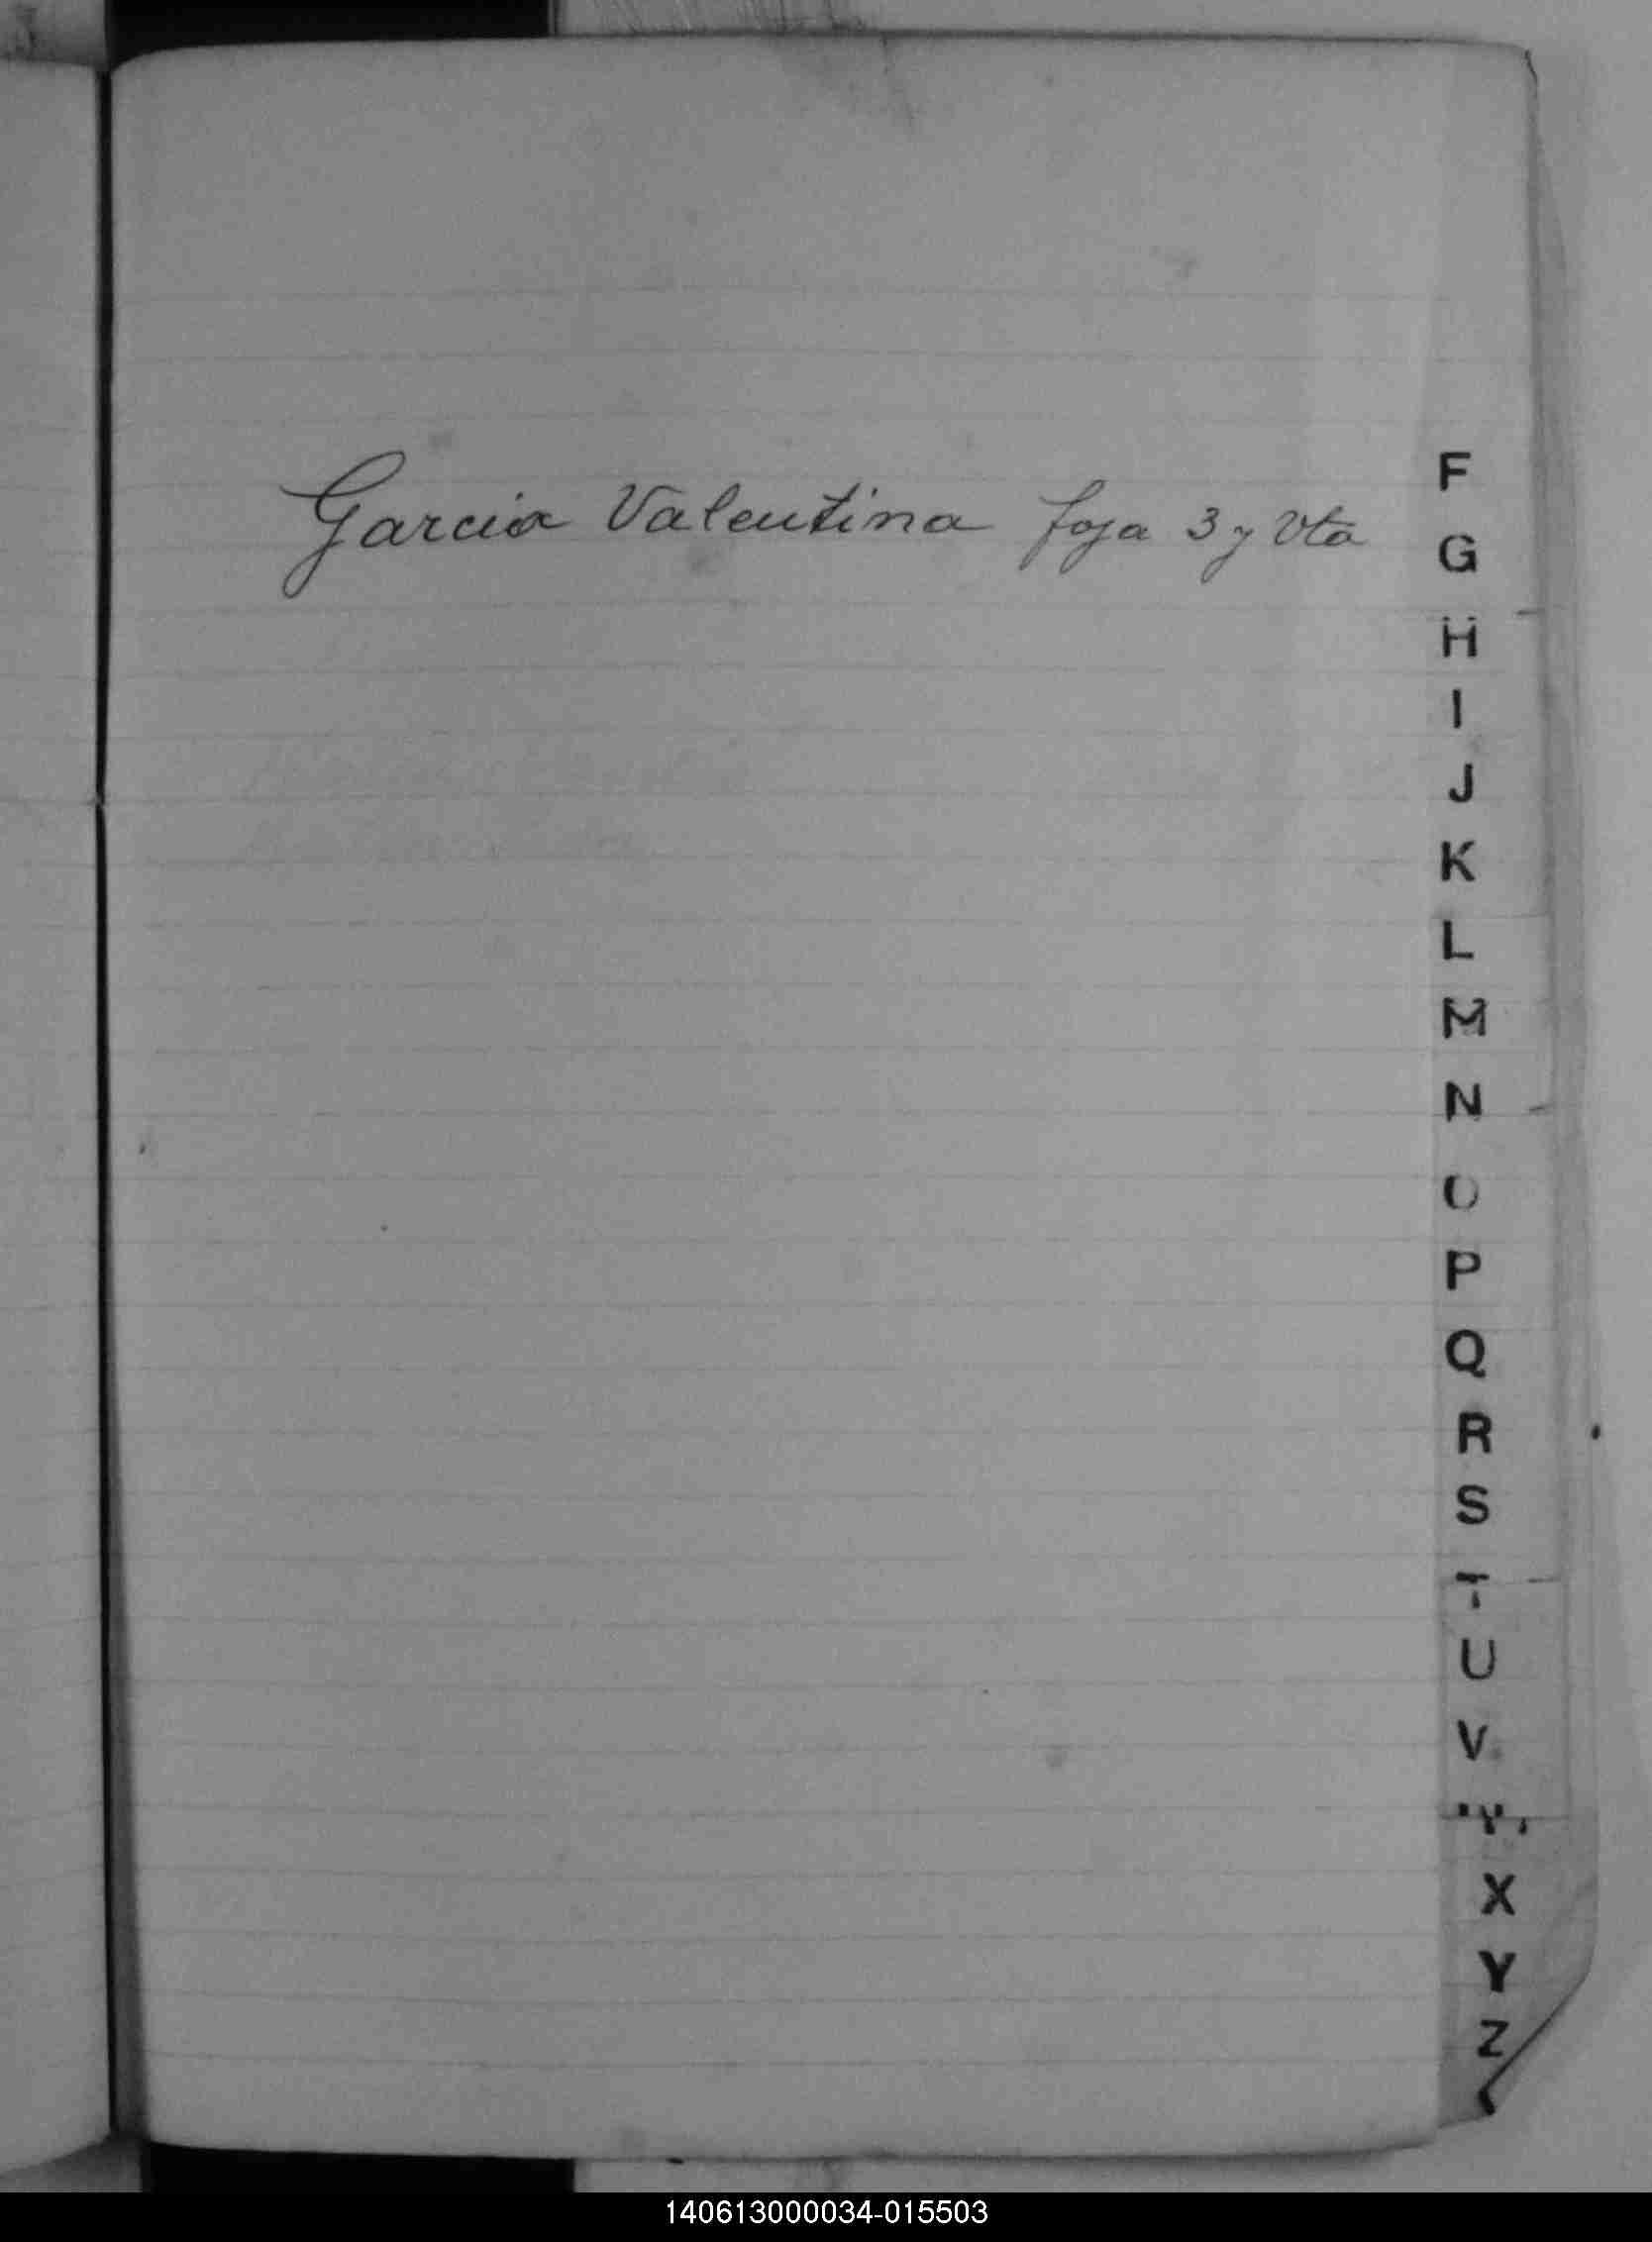 Garcia Valentina foja 3 y vta
F
G
H
I
J
K
L
M
N
O
P
Q
R
S
T
U
V
W
X
Y
Z
140613000034-015503